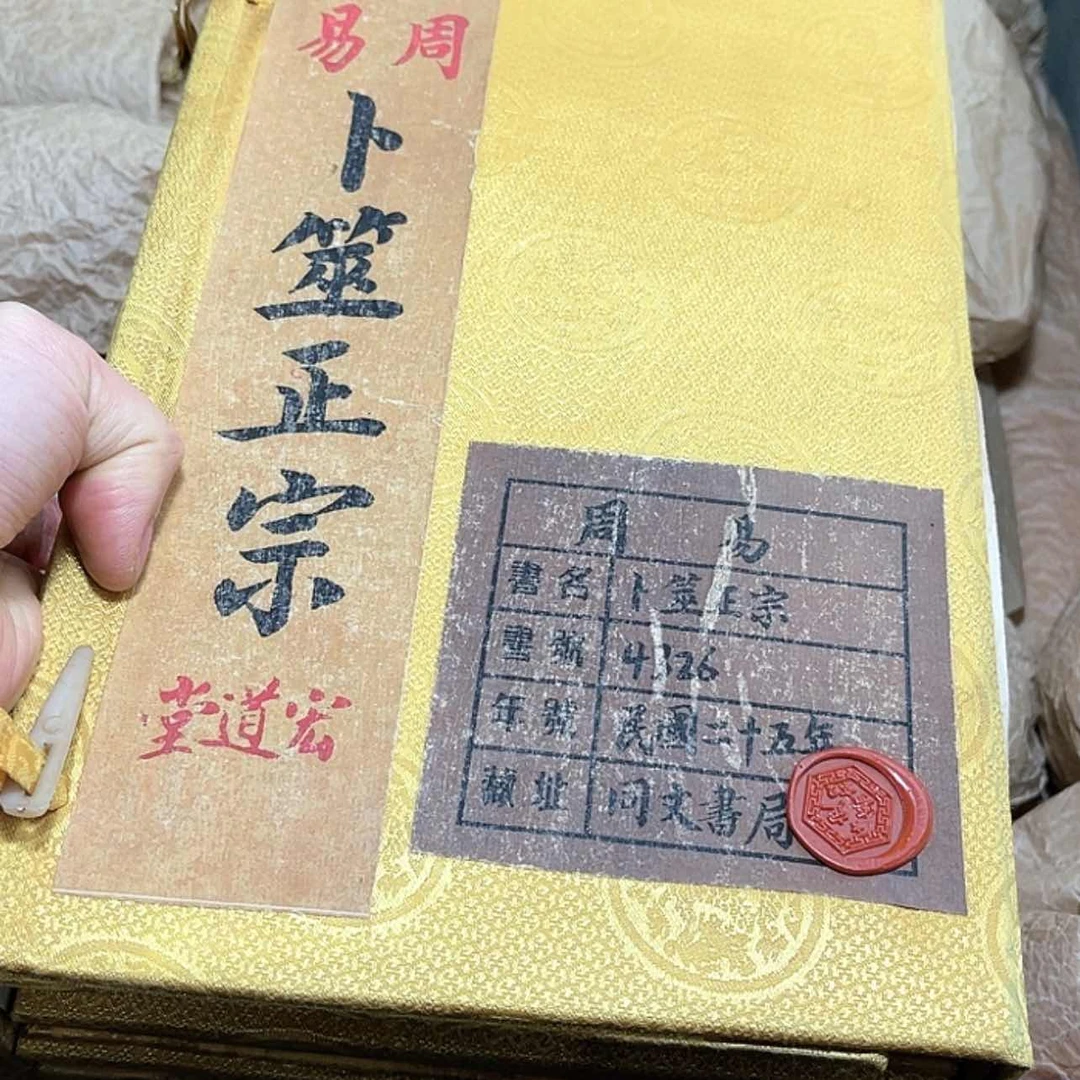 周易
卜筮正宗
宏道堂
周易
書名 卜筮正宗
書號 4326
年號 民國二十五年
藏址 同文書局